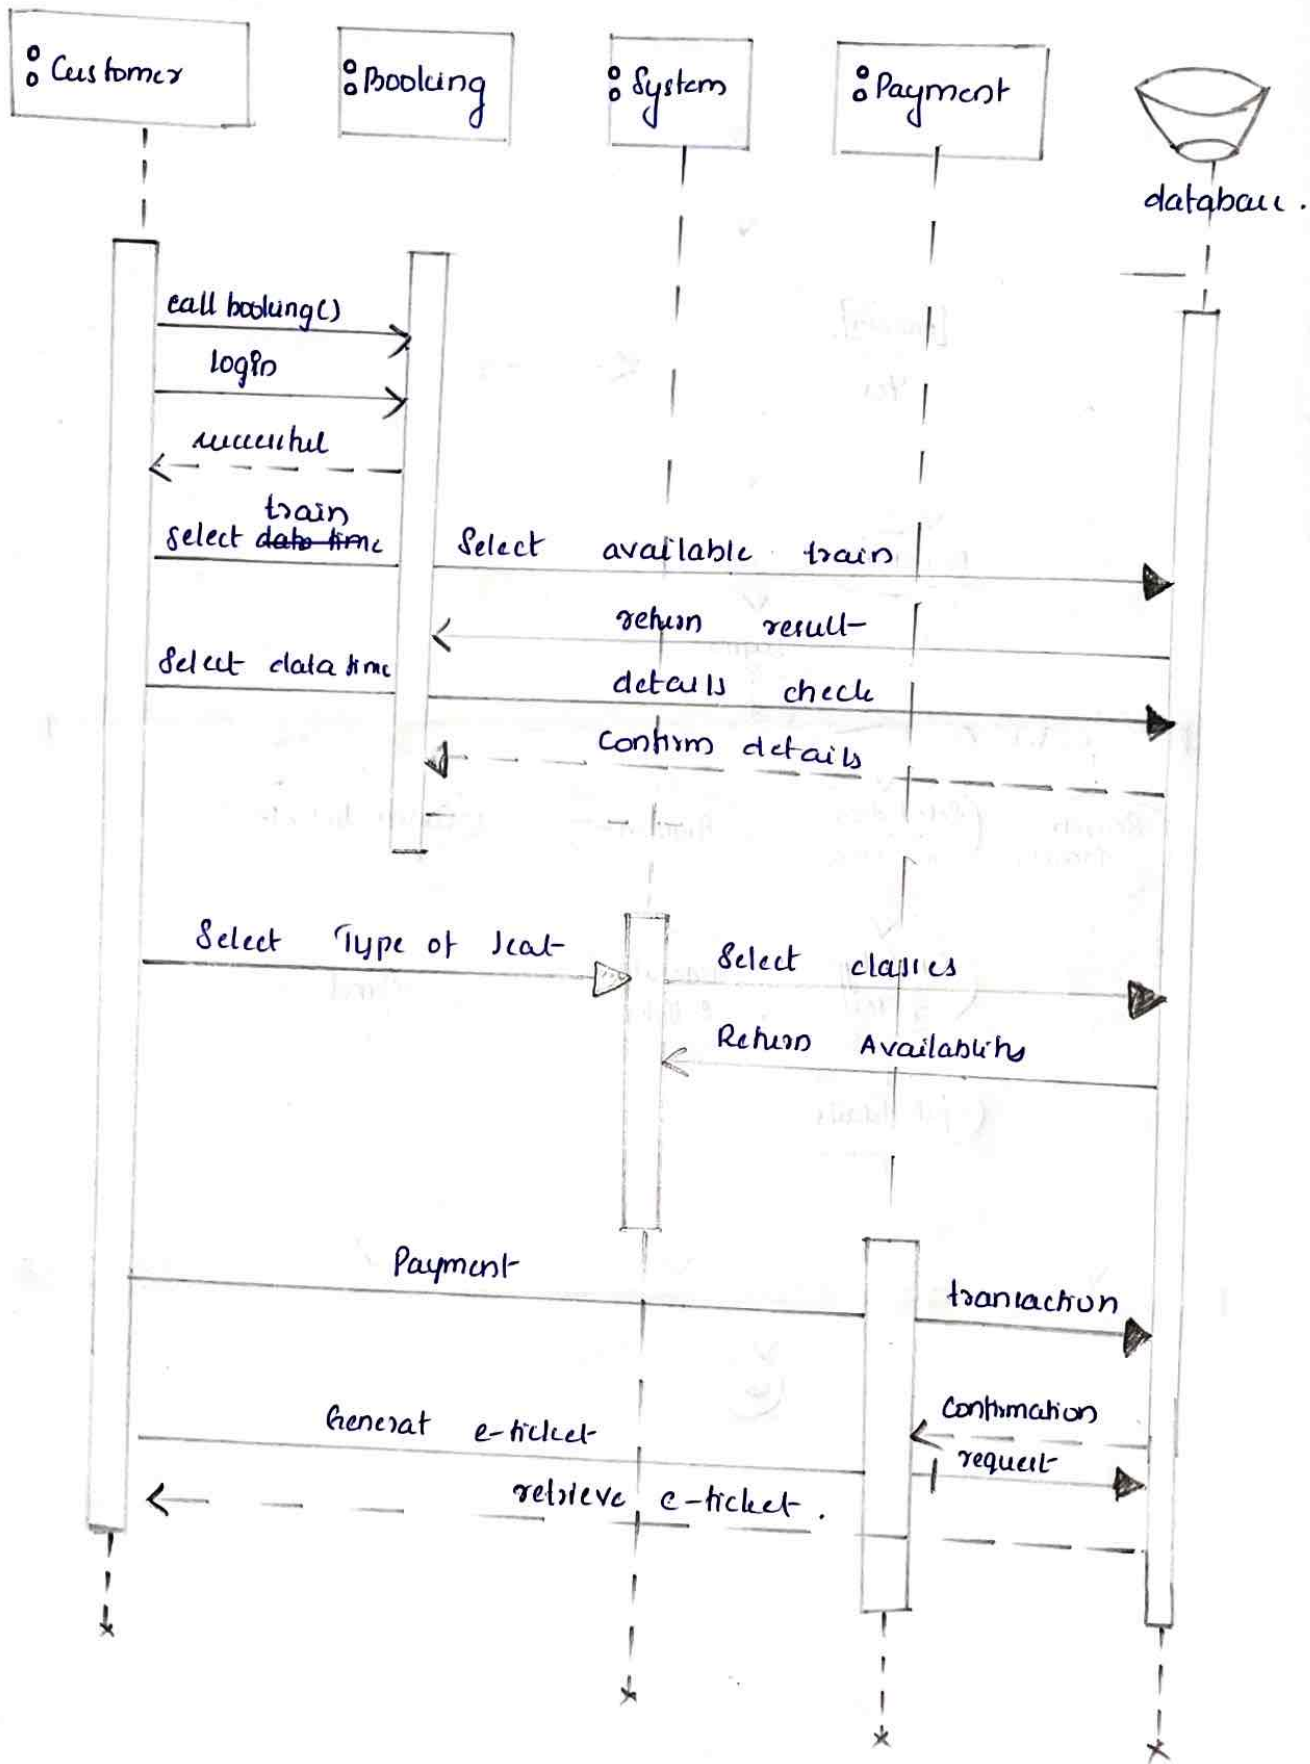 : Customer
: Booking
: System
: Payment
database.
call booking()
login
successful
train
Select date time Select available train
return result
Select data time details check
Confirm details
Select Type of Seat
Select classes
Return Availability
Payment
transaction
Confirmation
Generat e-ticket
request
retrieve e-ticket.